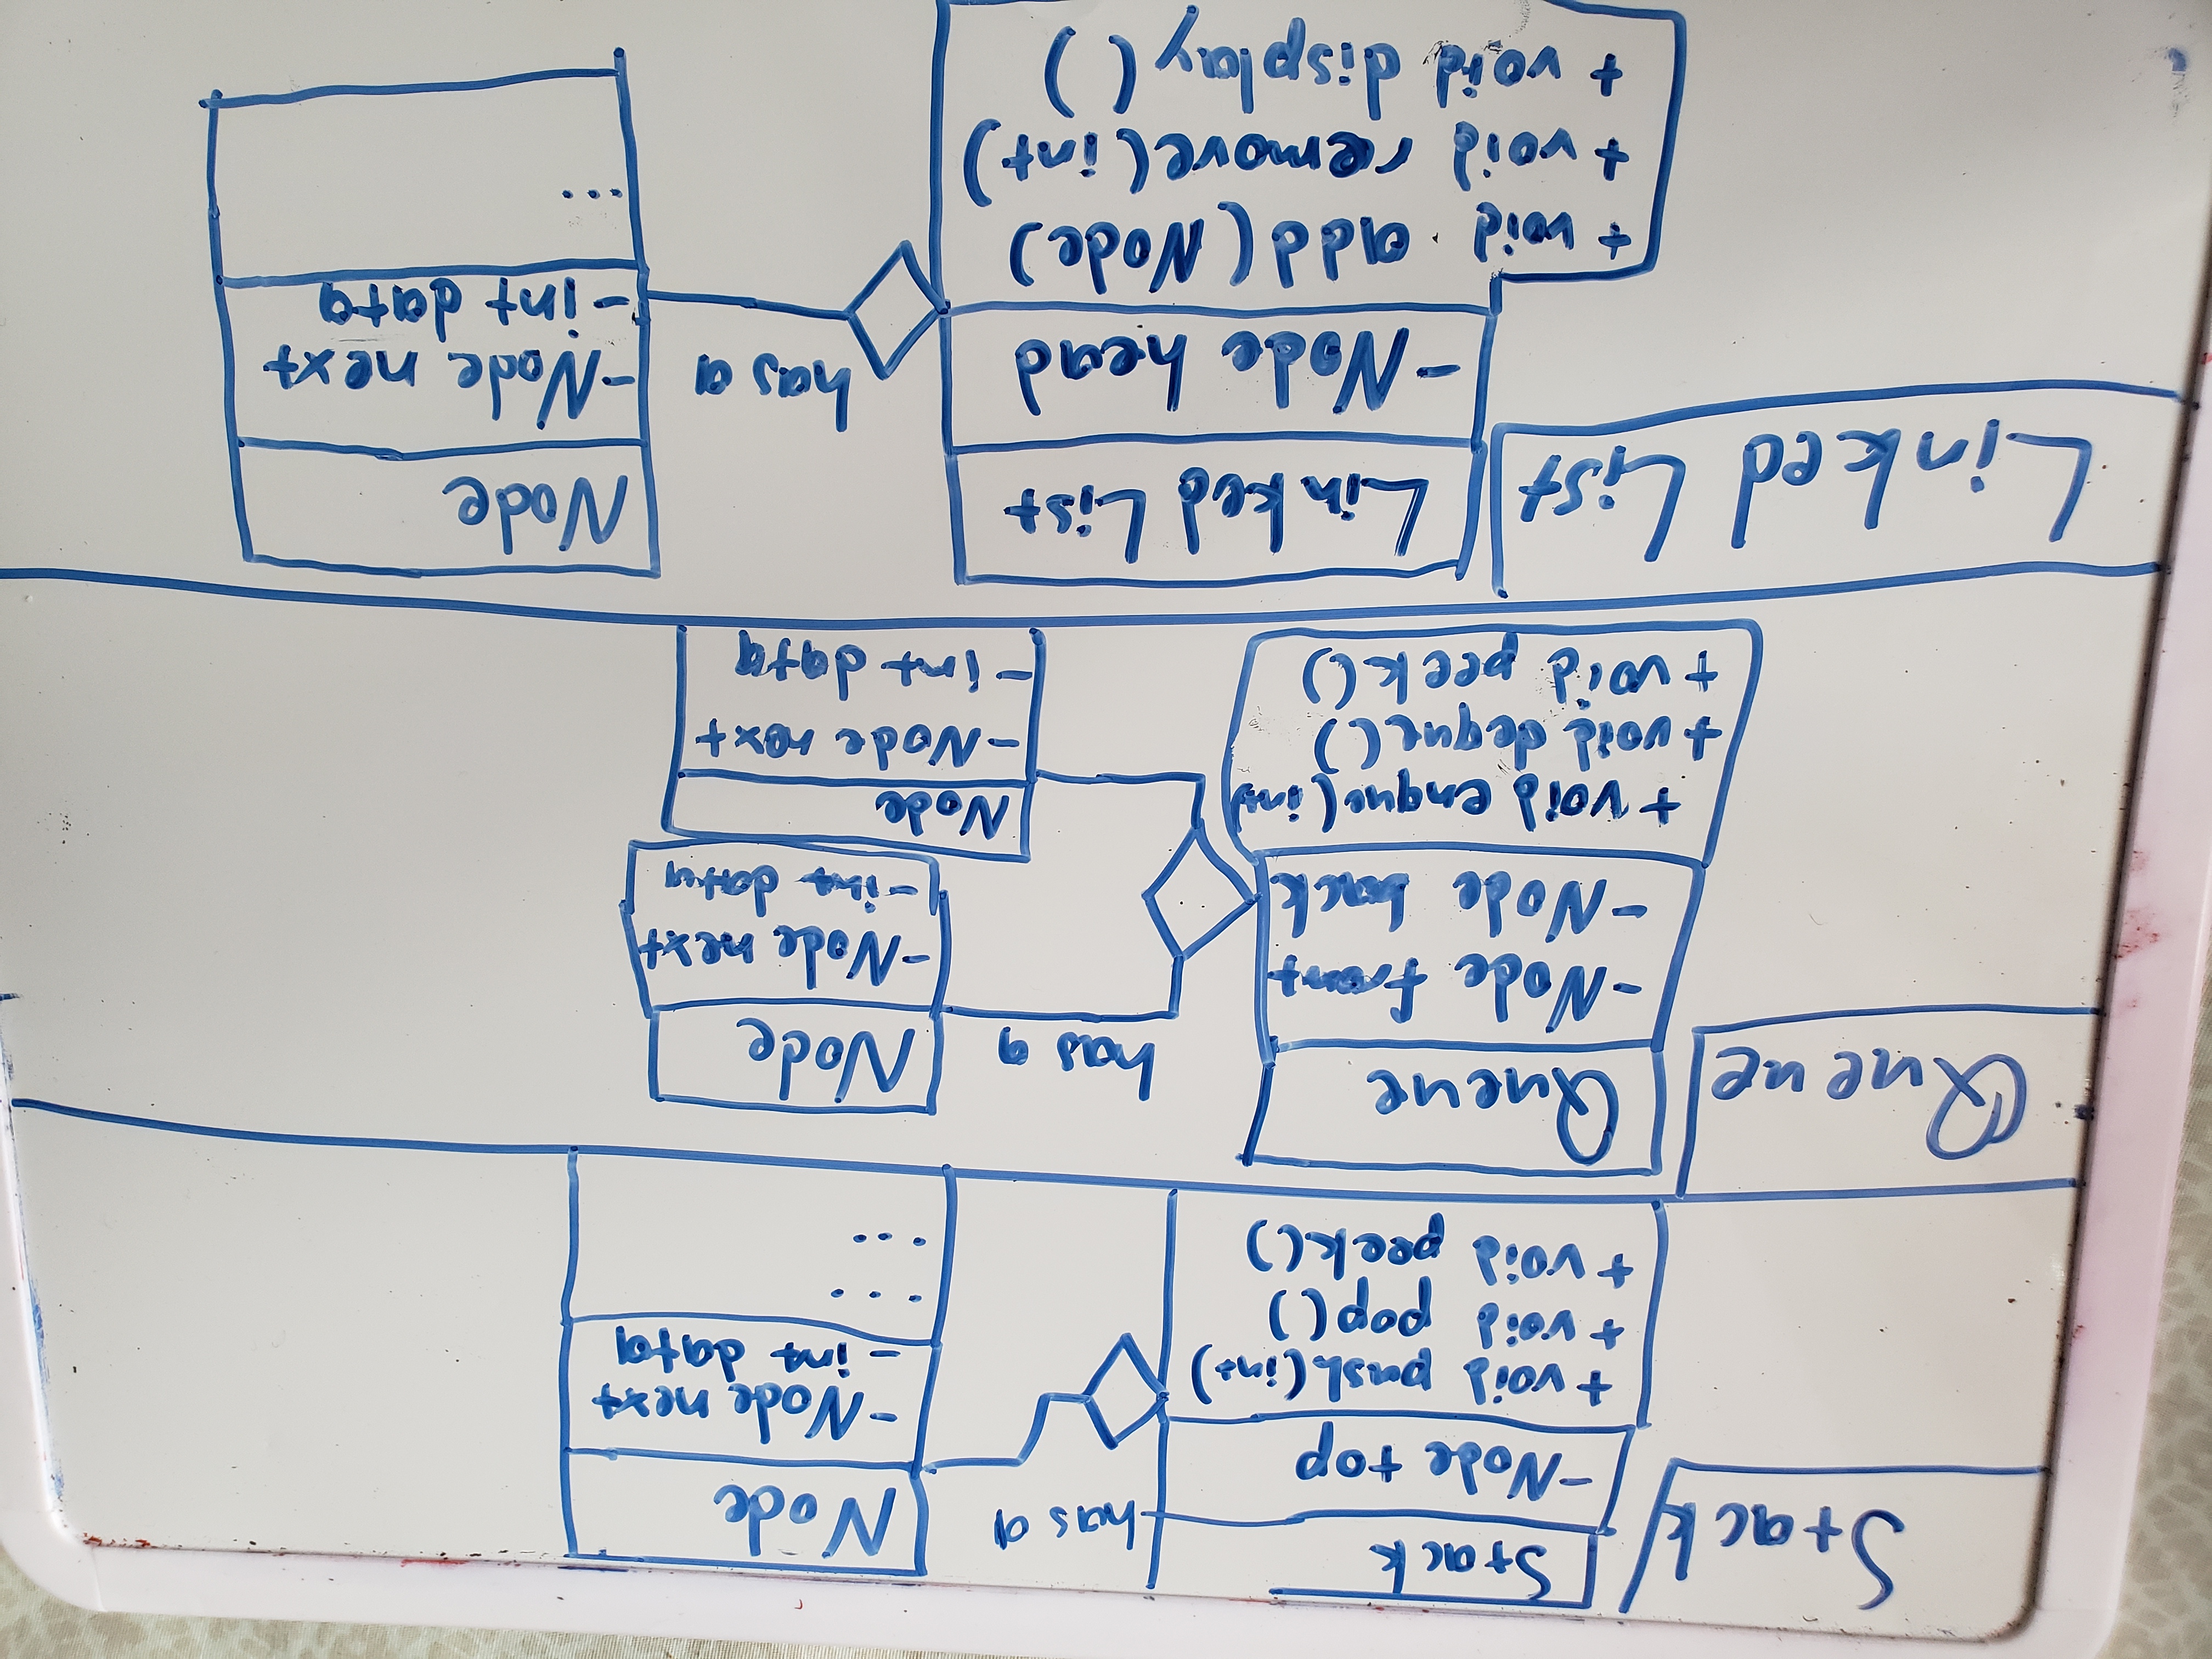 Stack
Stack
-Node top
+ void push(int)
+ void pop()
+ void peek()
has a
Node
-Node next
- int data
...
...
Queue
Queue
-Node front
-Node back
+ void enque(int)
+ void deque()
+ void peek()
has a
Node
-Node next
-int data
Node
-Node next
- int data
Linked List
Linked List
-Node head
+ void add(Node)
+ void remove(int)
+ void display()
has a
Node
-Node next
-int data
...